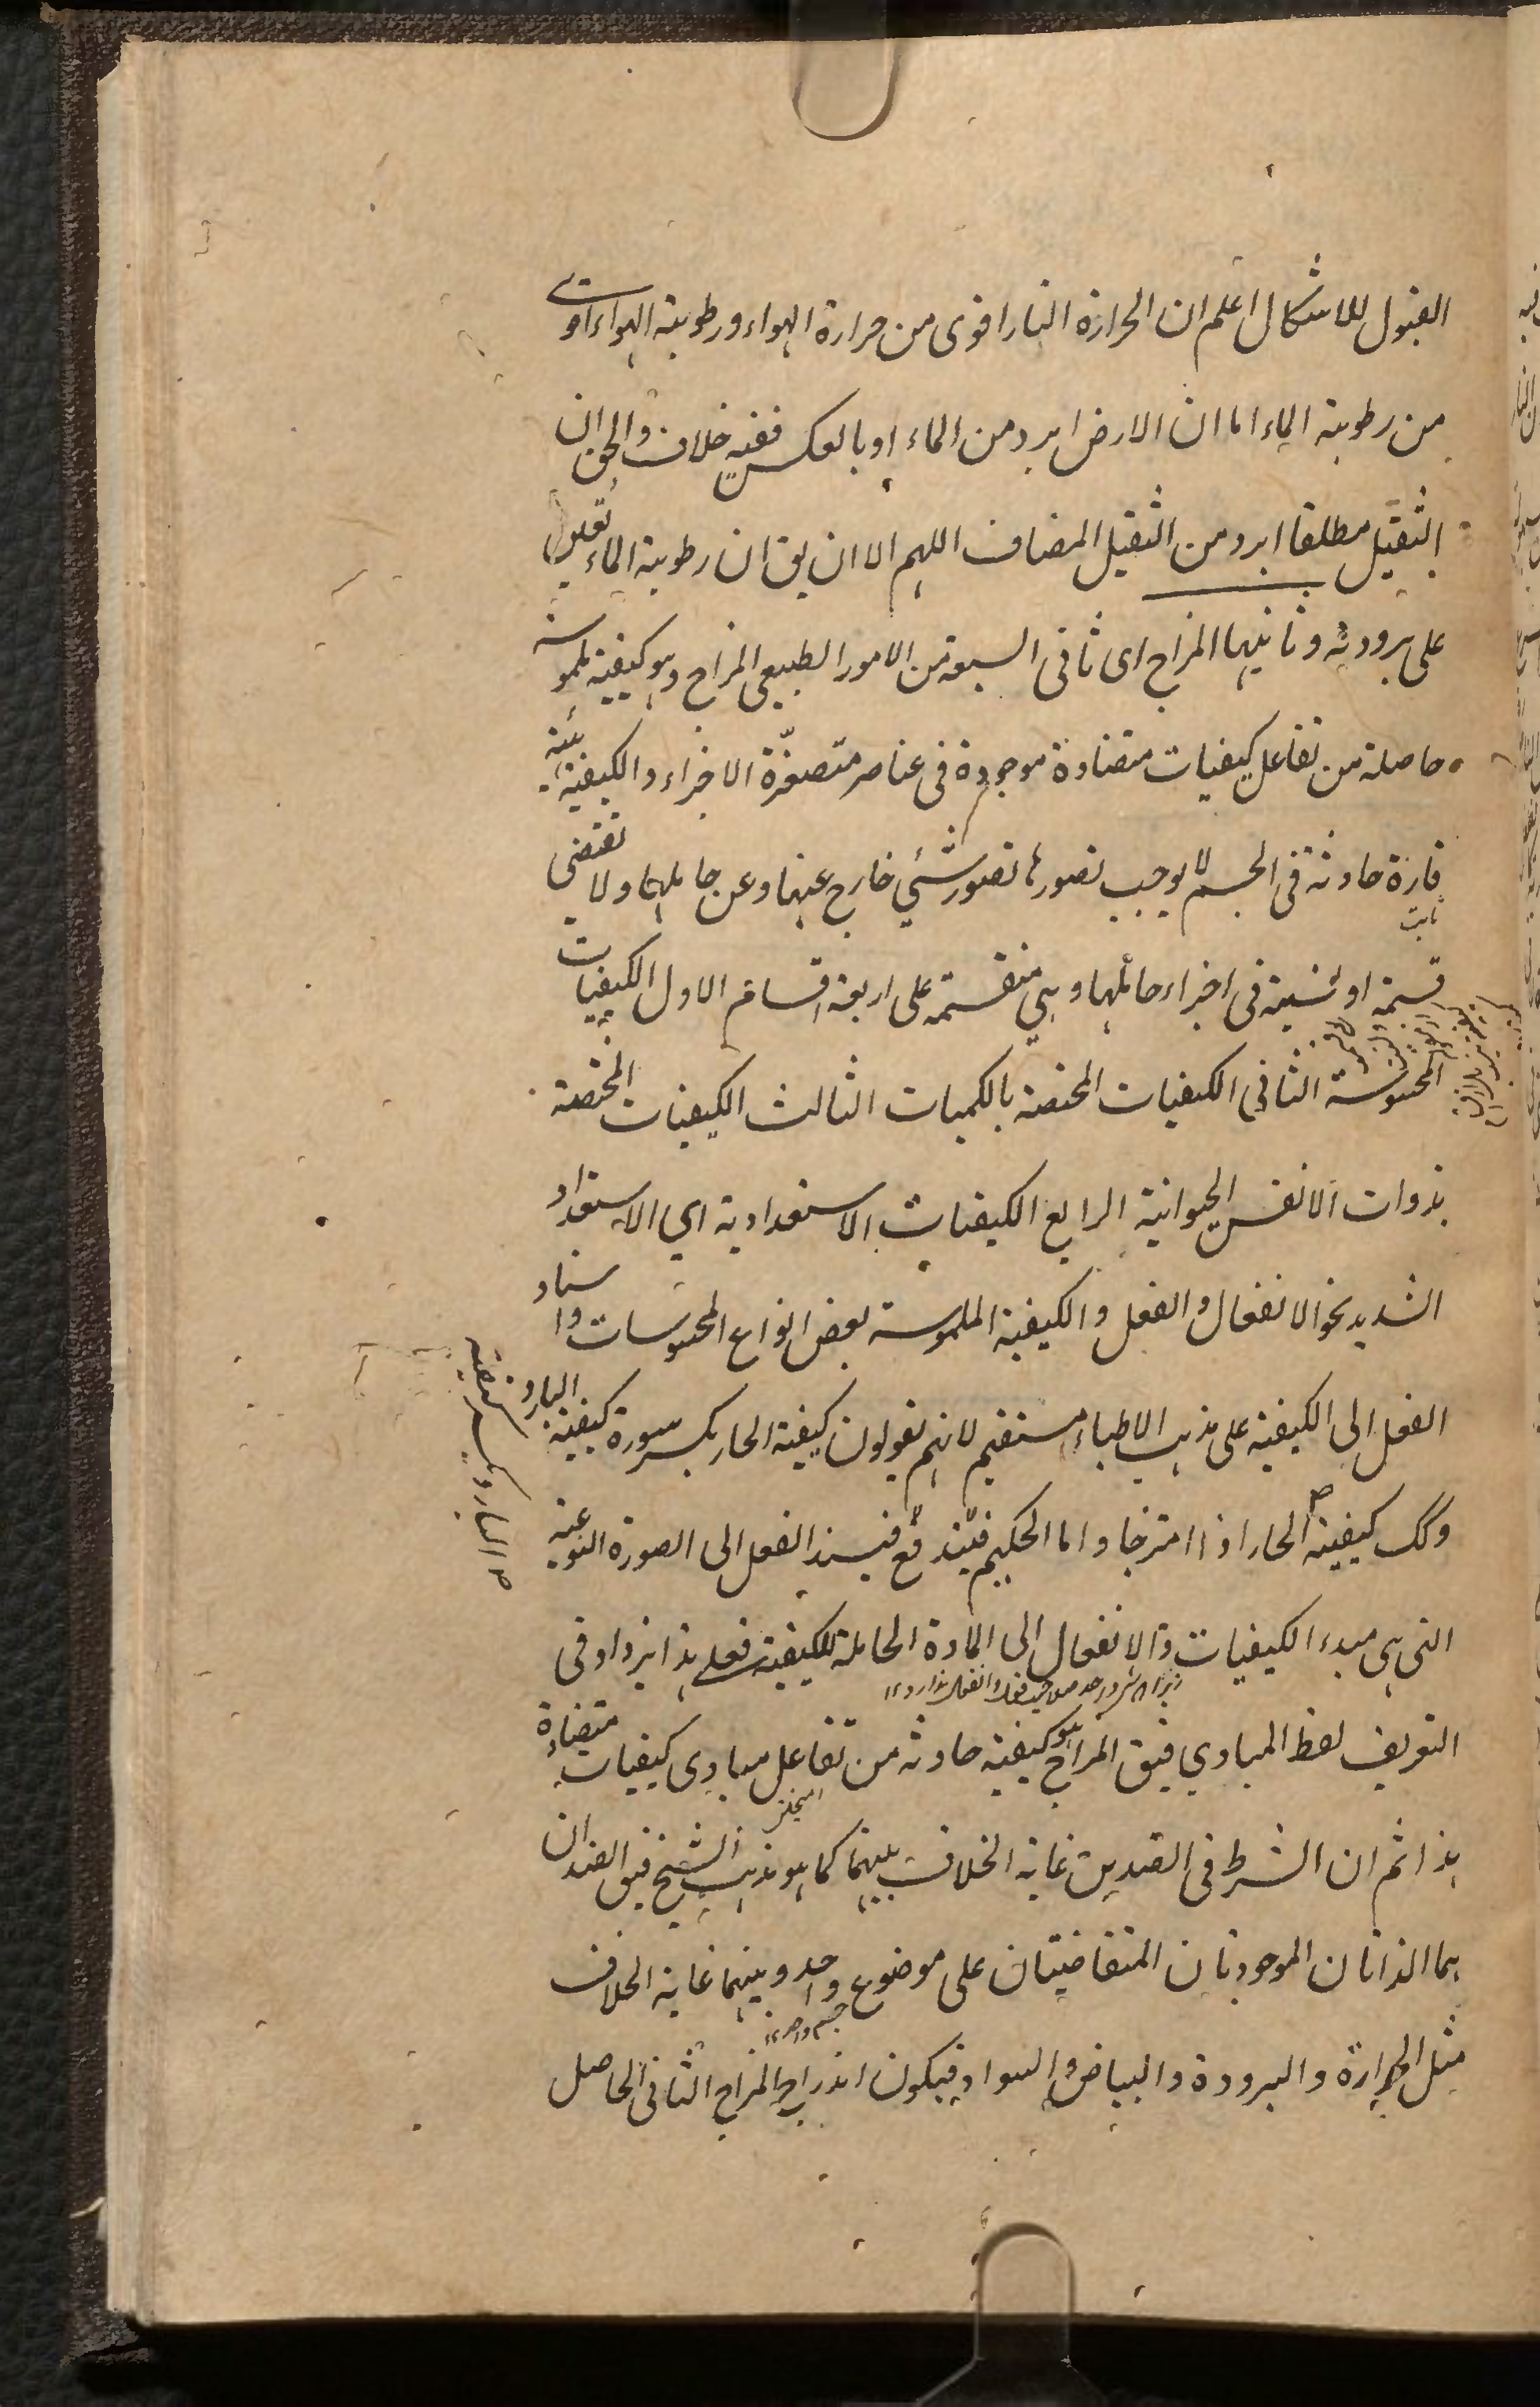 القبول للاشكال اعلم ان الحرارة النار اقوى من حرارة الهواء ورطوبة الهواء اقوى
من رطوبة الماء اما ان الارض ابرد من الماء او بالعكس ففيه خلاف والحق ان
الثقيل مطلقا ابرد من الثقيل المضاف اللهم الا ان يق ان رطوبة الماء تعلين
على برودته وثانيها المزاج اى ثانى السبعة من الامور الطبيعى المزاج وهو كيفية ملموسة
حاصلة من تفاعل كيفيات متضادة موجودة فى عناصر متصغّرة الاجزاء والكيفية هيئة
قارة حادثة فى الجسم لا يوجب تصورها تصور شئ خارج عنها وعن حاملها ولا تقتضى
ثابت
قسمة او نسبة فى اجزاء حائلها وهى منقسمة على اربعة اقسام الاول الكيفيات
المحسوسة الثانى الكيفيات المختصة بالكميات الثالث الكيفيات المختصة
بذوات الانفس الحيوانية الرابع الكيفيات الاستعدادية اي الاستعداد
الشديد نحو الانفعال والفعل والكيفية الملموسة بعض انواع المحسوسات واسناد
الفعل الى الكيفية على مذهب الاطباء مستقيم لانهم يقولون كيفية الحار يكسر سورة كيفية البارد
وكك كيفية الحار اذا امتزجا واما الحكيم فيسند الفعل الى الصورة النوعية
التى هى مبدء الكيفيات والانفعال الى المادة الحاملة للكيفية فعلى هذا يزداد فى
التعريف لفظ المبادي فيق المزاج هو كيفية حادثة من تفاعل مبادى كيفيات متضادة
هذا ثم ان الشرط فى الضدين غاية الخلاف بينهما كما هو مذهب الشيخ فيق الضدان
هما الذاتان الموجودتان المتعاقبتان على موضوع واحد وبينهما غاية الخلاف
جسم واحد
مثل الحرارة والبرودة والبياض والسواد فيكون اندراج المزاج الثانى الحاصل